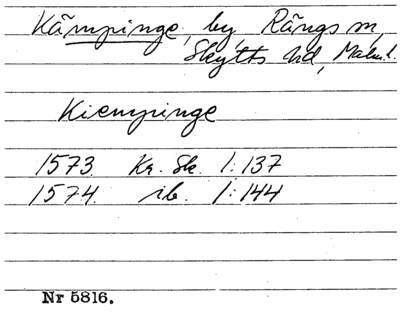 Kämpinge, by, Rängs sn,
Skytts hd, Malm. l.
Kiempinge
1573. Kr. Sk. 1:137
1574. ib. 1:144
Nr 5816.